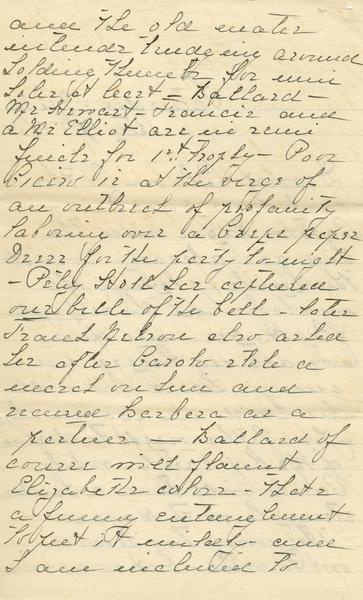 and the old mater
intender trudgin around
holding them to
sober at least - Ballard -
Mr Stewart - Francis and
a Mr Elliot are in semi
finals for 1st Trophy - Poor
Cicero is at the verge of
an outbreak of profanity
laboring over a Crepe paper
Dress for the party to-night
- Pely has captured
our belle of the ball - later
Frank Nelson also asked
her after Carolo stole a
march on him and
secured Barbera as a
partner - Ballard of
course will flaunt
Elizabeths colors - That's
a funny entanglement
to put it mildly - and
I am inclined to